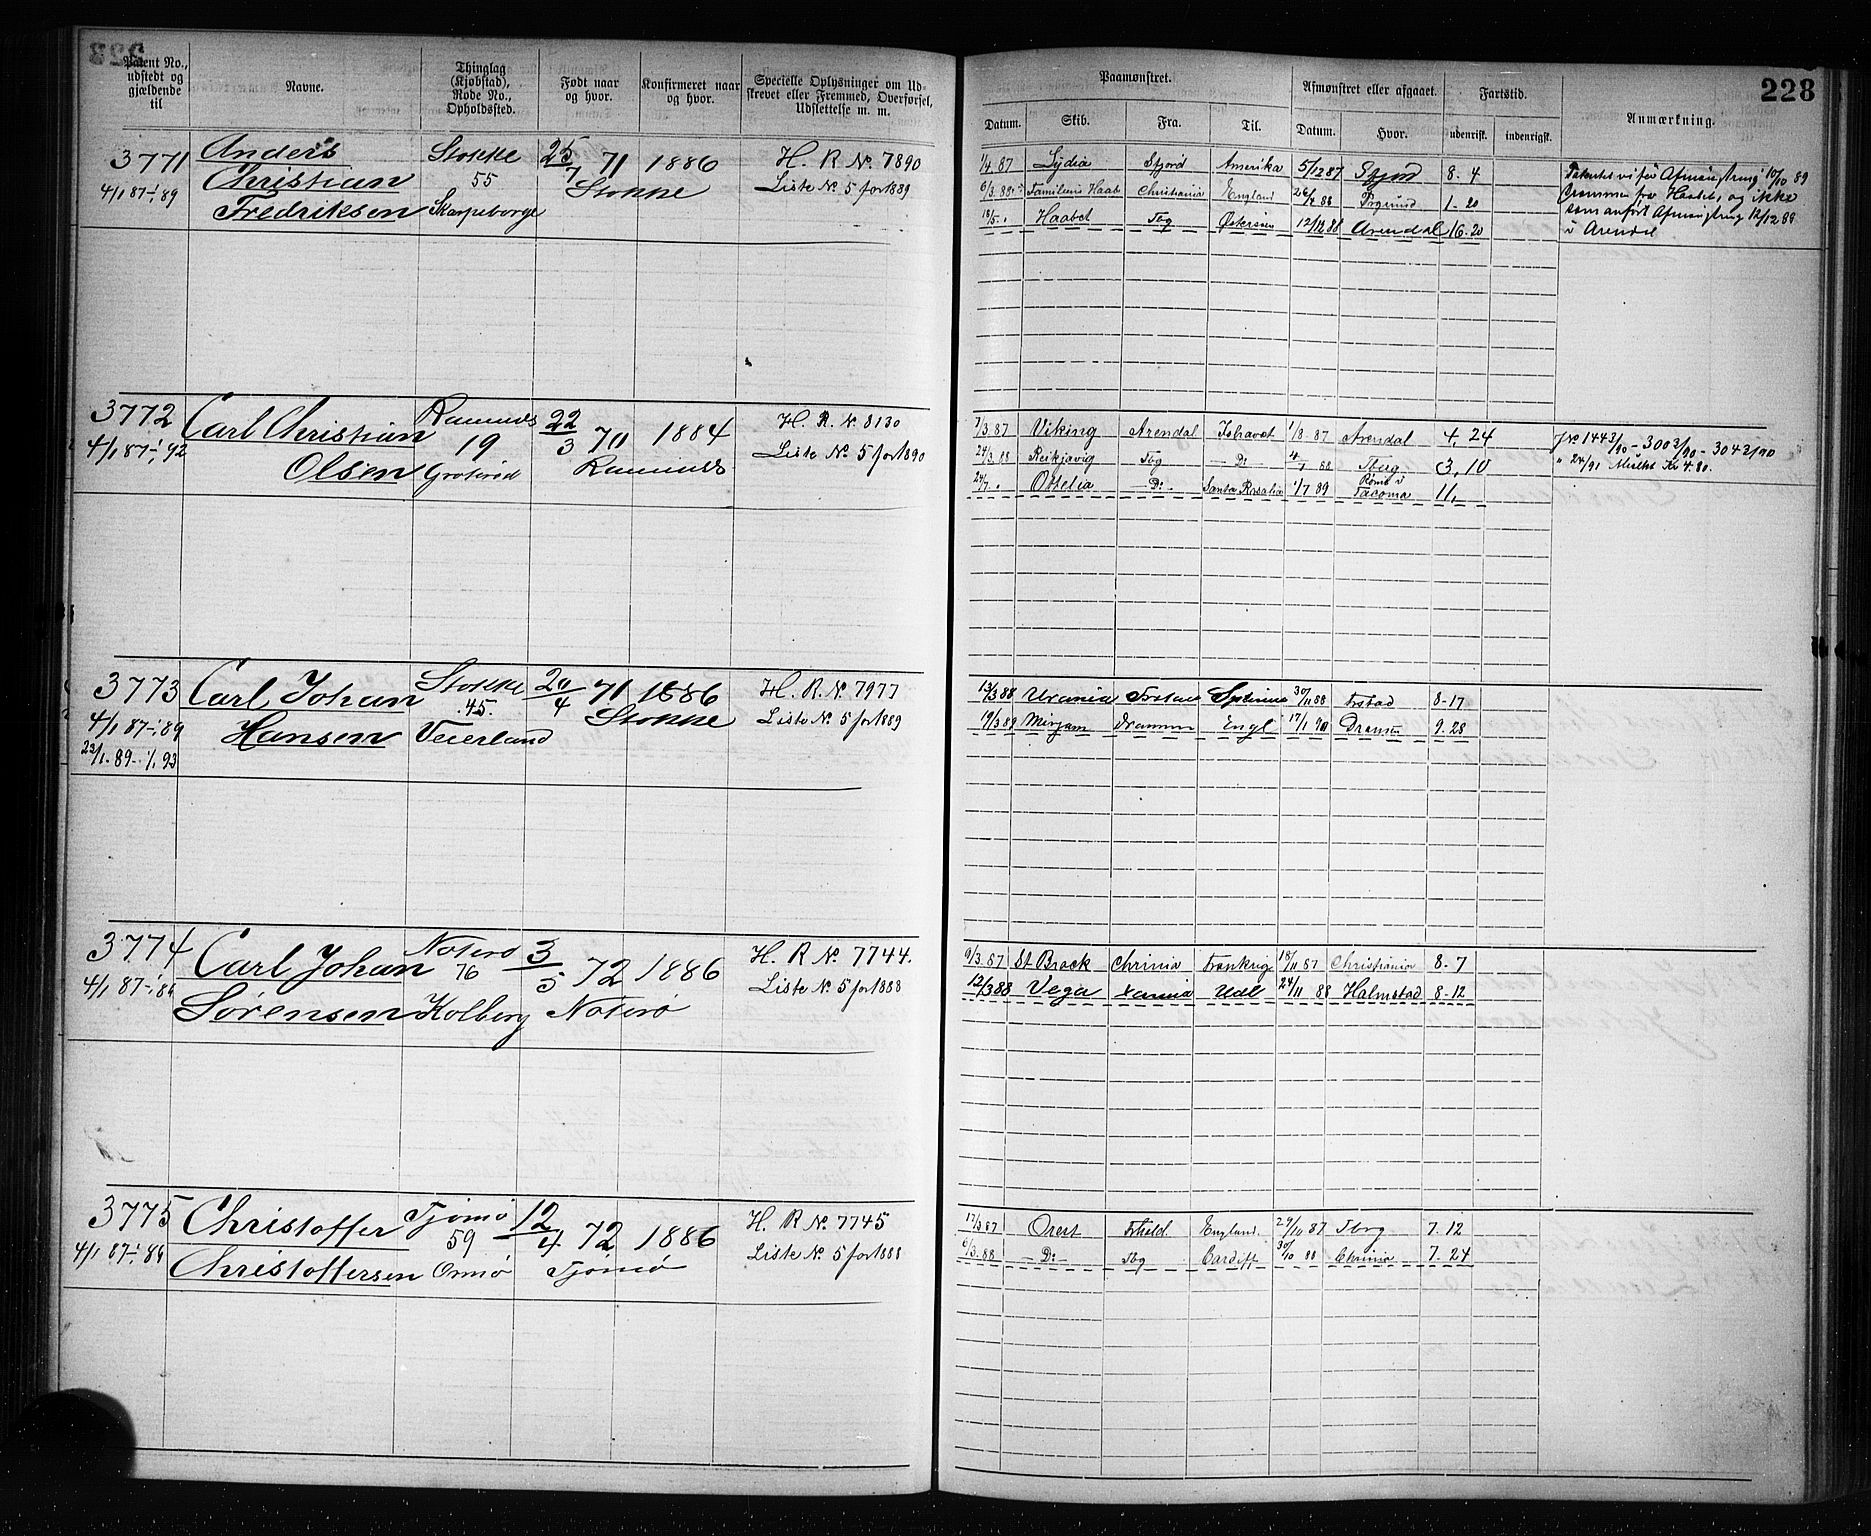 Patent No., udstedt og gjældende til
Navne.
Thinglag (Kjøbstad), Rode No., Opholdssted.
Født naar og hvor.
Konfirmeret naar og hvor.
Specielle Oplysninger om Udskrevet eller Fremmed, Overførsel, Udslettelse m. m.
Paamønstret.
Afmønstret eller afgaaet.
Fartstid.
Anmærkning.
228
Datum.
Skib.
Fra.
Til.
Datum.
Hvor.
udenrigsk.
indenrigsk.
3771
4/1 87-1/1 89
Anders
Christian
Fredriksen
Stokke
55
Skarpeborge
25/7 71
Stokke
1886
H. R No. 7890
Liste No. 5 for 1889
1/4 87 Lydia Sfjord Amerika 5/12 87 Sfjord 8. 4
6/3 88 Familiens Haab Christiania England 88 1-20
18/5 " Haabet Tbg Østersøen 12/12 88 Arendal 16.20
Patentet vi før Afmønstring 10/10 89
fra Haabet, og ikke
som anført Afmønstring 12/12 88
i Arendal
3772
4/1 87-1/1 92
Carl Christian
Olsen
Ramnes
19
22/3 70
Ramnes
1884
H. R. No. 8130
Liste No. 5 for 1890
7/3 87 Viking Arendal 1/8 87 Arendal 4. 24
24/3 88 Reikjavig Tbg D: 88 Tbg 3, 10
24/7 " Ottelia D: Santa Rosalia 1/7 89 Rømt i Tacoma 11,
J No 1443/90 - 3003/90 - 3042/90
" 24/91 Mulkt Kr 4.80.
3773
4/1 87-1/1 89
23/1. 89-1/1 93
Carl Johan
Hansen
Stokke
45.
Veierland
20/4 71
Stokke
1886
H. R. No. 7977
Liste No. 5 for 1889
13/3 88 Urania 30/11 88 Frstad 8-17
19/3 89 Mirjam Dramm Engl 17/1 90 Dramm 9. 28
3774
4/1 87-1/1 88
Carl Johan
Sørensen
Noterø
76
Kolberg
3/5 72
Noterø
1886
H. R No. 7744.
Liste No. 5 for 1888
9/3 87 Chrinia Frankrige 18/11 87 Christiania 8. 7
12/3 88 Vega Udl 24/11 88 Halmstad 8-12
3775
4/1 87-1/1 88
Christoffer
Christoffersen
Tjømø
59
Ormø
12/4 72
Tjømø
1886
H. R No. 7745
Liste No. 5 for 1888
17/3 87 Orest Frhald England 29/10 87 Tbrg 7. 12
6/3. 88 D: Tbg Cardiff 30/10 88 Chrinia 7. 24